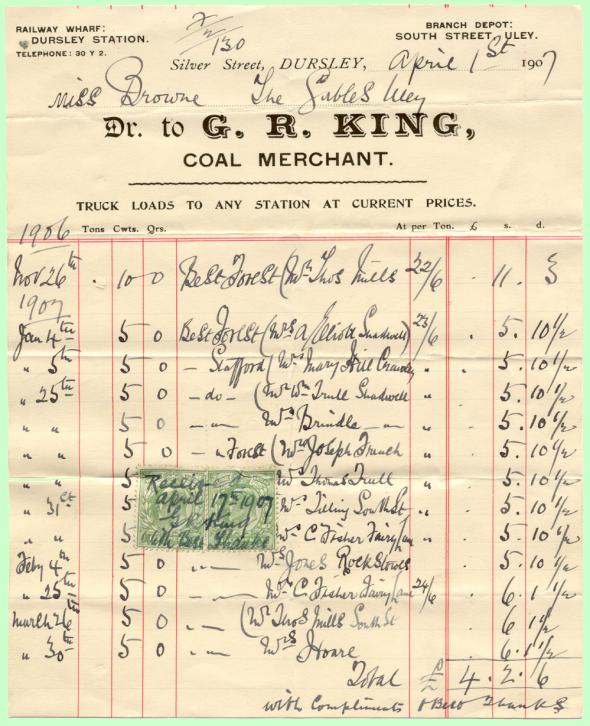 RAILWAY WHARF:
DURSLEY STATION.
TELEPHONE: 30 Y 2.
130
BRANCH DEPOT:
SOUTH STREET, ULEY.
Silver Street, DURSLEY, April 1St 1907
Miss Browne The Gables Uley
Dr. to G. R. KING,
COAL MERCHANT.
TRUCK LOADS TO ANY STATION AT CURRENT PRICES.
1906 Tons Cwts. Qrs. At per Ton. £ s. d.
Nov 26th . 10 0 Best Forest (Mr Thos Mills 22/6 . 11. 3
1907
Jan 4th 5 0 Best Forest (Mrs A Elliott Shadwell) 23/6 . 5. 10 1/2
" 5th 5 0 – Stafford (Mrs Mary Hill Crawley " . 5. 10 1/2
" 25th 5 0 – do – (Mr Wm Trull Shadwell " . 5. 10 1/2
" " 5 0 – " – Mrs Brindle – " – " . 5. 10 1/2
" " 5 0 – " Forest (Mr Joseph French " 5. 10 1/2
" " 5 Mr Thomas Trull " 5. 10 1/2
" 31st 5 Mr Tilling South St " . 5. 10 1/2
" " 5 Mr C Fisher Fairy Lane " 5. 10 1/2
Received
April 17th 1907
G R King
with Best Thanks
Feby 4th 5 0 " – Mrs Jones Rockstowes 5. 10 1/2
" 25th 5 0 " – Mr C. Fisher Fairy Lane 24/6 . 6. 1 1/2
March 26th 5 0 " – (Mr Thos Mills South St 6 1 1/2
" 30th 5 0 " – Mrs Hoare . 6. 1 1/2
Total £ 4. 2. 6
with Compliments & Best Thanks